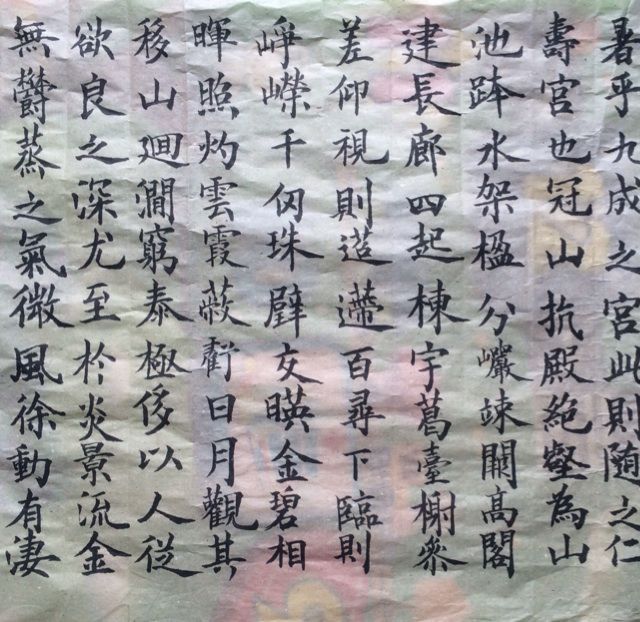 暑乎九成之宮此則隨之仁
壽宮也冠山抗殿絶壑為山
池跨水架楹分巗竦闕高閣
建長廊四起棟宇葛臺榭參
差仰視則迢遰百尋下臨則
崢嶸千仞珠壁交暎金碧相
暉照灼雲霞蔽虧日月觀其
移山迴澗窮泰極侈以人從
欲良之深尤至於炎景流金
無鬱蒸之氣微風徐動有凄